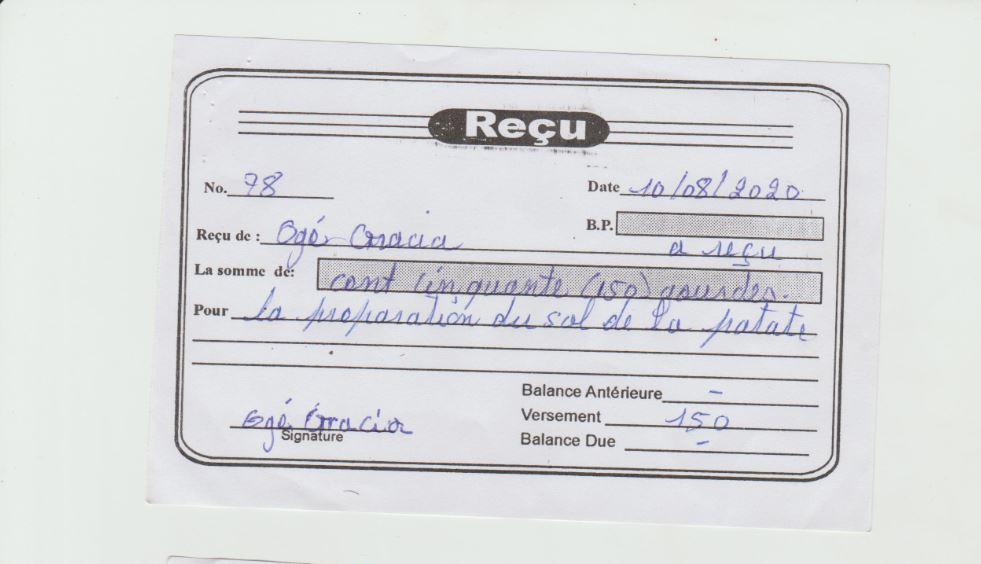 Reçu
No. 78 Date 10/08/2020
B.P.
Reçu de : Ogé Gracia a reçu
La somme de: cent cinquante (150) gourdes.
Pour la préparation du sol de la patate
Balance Antérieure -
Versement 150
Ogé Gracia
Signature
Balance Due -